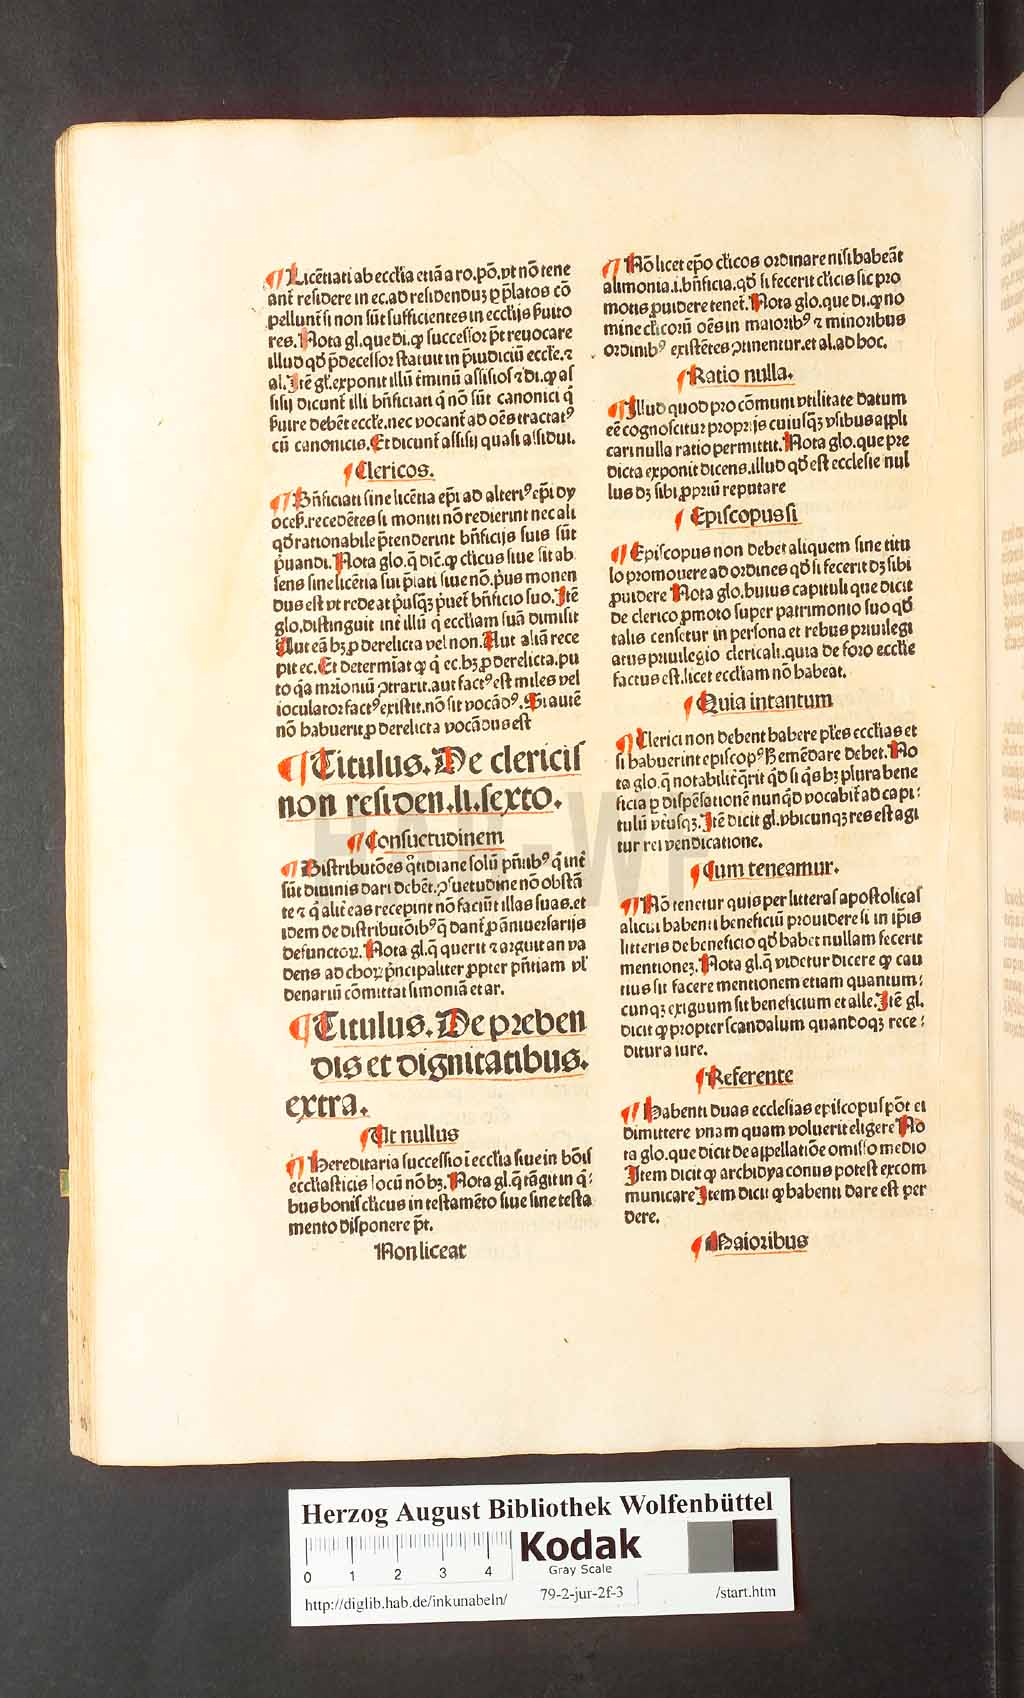 ¶ Licētiati ab ecclīa etiā a ro.pō.vt nō tene
ant̄ residere in ec.ad residenduꝫ ꝑ p̄latos cō
pellunt̄ si non sūt sufficientes in ecclijs ẜuito
res. Nota gl.que di.ꝙ successor pt̄ reuocare
illud qd̄ p̄decessor statuit in p̄iudiciū eccle.⁊
al. Itē gl̄.exponit illū t̄minū assisios ⁊ di.ꝙ as
sisij dicunt̄ illi bn̄ficiati q̇ nō sūt canonici q̇
ẜuire debēt eccle.nec vocant̄ ad oēs tractatꝰ
cū canonicis. Et dicunt̄ assisij quasi assidui.
¶ Clericos.
¶ Bn̄ficiati sine licētia ep̄i ad alteriꝰ ep̄i dy
oceẜ.recedētes si moniti nō redierint nec ali
qd̄ rationabile p̄tenderint bn̄ficijs suis sūt
p̄uandi. Nota glo.q̄ dic̄.ꝙ cl̄icus siue sit ab
sens sine licētia sui p̄lati siue nō.p̄us monen
dus est vt redeat p̄usqꝫ p̄uet̄ bn̄ficio suo. Itē
glo.distinguit int̄ illū q̇ eccliam suā dimisit
Aut eā hꝫ ꝓ derelicta vel non. Aut aliā rece
pit ec. Et determīat ꝙ q̇ ec.hꝫ ꝓ derelicta.pu
to q̇a mr̄ioniū ꝯtraxit.aut factꝰ est miles vel
ioculator factꝰ existit.nō sit vocādꝰ. Si autē
nō habuerit ꝓ derelicta vocādus est
¶ Titulus. De clericis
non residen.li.sexto.
¶ Consuetudinem
¶ Distributōes q̄tidiane solū pn̄tibꝰ q̇ int̄
sūt diuinis dari debēt.ꝯsuetudine nō obstā
te ⁊ q̇ alit̄ eas recepint nō faciūt illas suas.et
idem de distributōibꝰ q̄ dant̄ ꝓ āniuersarijs
defunctoꝝ. Nota gl.q̄ querit ⁊ arguit an va
dens ad choꝝ p̄ncipaliter ꝓpter pn̄tiam vl̄
denariū cōmittat simoniā et ar.
¶ Titulus. De preben
dis et dignitatibus.
extra.
¶ Ut nullus
¶ Hereditaria successio ī ecclīa siue in bōis
eccliasticis locū nō hꝫ. Nota gl.q̄ tāgit in q̇⸗
bus bonis cl̄icus in testamēto siue sine testa
mento disponere pt̄.
Non liceat
¶ Nō licet ep̄o cl̄icos ordinare nisi habeāt
alimonia.i.bn̄ficia.qd̄ si fecerit cl̄icis sic pro
motis ꝓuidere tenet̄. Nota glo.que di.ꝙ no
mine cl̄icorū oēs in maioribꝰ ⁊ minoribus
ordinibꝰ existētes ꝯtinentur.et al.ad hoc.
¶ Ratio nulla.
¶ Illud quod pro cōmuni vtilitate datum
eē cognoscitur proprijs cuiusqꝫ vsibus appli
cari nulla ratio permittit. Nota glo.que pre
dicta exponit dicens.illud qd̄ est ecclesie nul
lus dꝫ sibi ꝓpriū reputare
¶ Episcopus si
¶ Episcopus non debet aliquem sine titu
lo promouere ad ordines qd̄ si fecerit dꝫ sibi
ꝓuidere Nota glo.huius capituli que dicit
de clerico ꝓmoto super patrimonio suo qd̄
talis censetur in persona et rebus priuilegi
atus priuilegio clericali.quia de foro ecclie
factus est.licet eccliam nō habeat.
¶ Quia intantum
¶ Clerici non debent habere pl̄es ecclias et
si habuerint episcopꝰ ħ emēdare debet. No
ta glo.q̄ notabilit̄ q̄rit qd̄ si q̇s hꝫ plura bene
ficia ꝑ dispēsationē nunqd̄ vocabit̄ ad capi⸗
tulū vt̄iusqꝫ. Itē dicit gl.vbicunqꝫ res est agi
tur rei vendicatione.
¶ Cum teneamur.
¶ Nō tenetur quis per litteras apostolicas
alicui habenti beneficiū prouidere si in ip̄is
litteris de beneficio qd̄ habet nullam fecerit
mentioneꝫ. Nota gl.q̄ videtur dicere ꝙ cau
tius sit facere mentionem etiam quantum⸗
cunqꝫ exiguum sit beneficium et alle. Itē gl.
dicit ꝙ propter scandalum quandoqꝫ rece⸗
ditur a iure.
¶ Referente
¶ Habenti duas ecclesias episcopus pōt ei
dimittere vnam quam voluerit eligere No
ta glo.que dicit de appellatiōe omisso medio
Item dicit ꝙ archidyaconus potest excom
municare Item dicit ꝙ habenti dare est per
dere.
¶ Maioribus
Herzog August Bibliothek Wolfenbüttel
0 1 2 3 4
Kodak
Gray Scale
http://diglib.hab.de/inkunabeln/ 79-2-jur-2f-3 /start.htm
HAB-WF